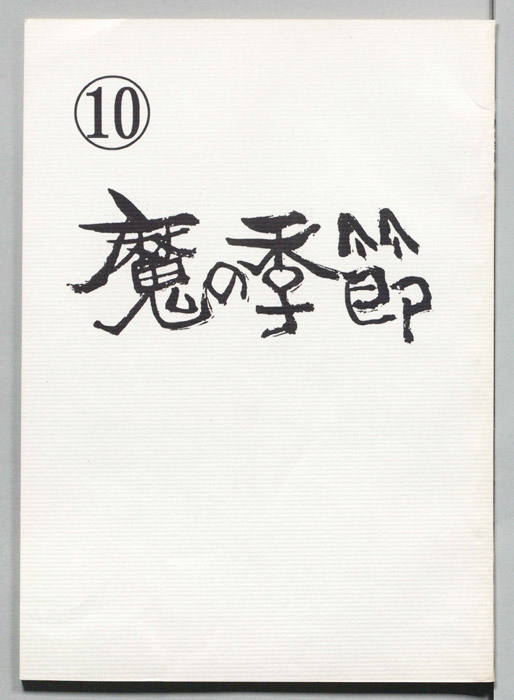 ⑩
魔の季節